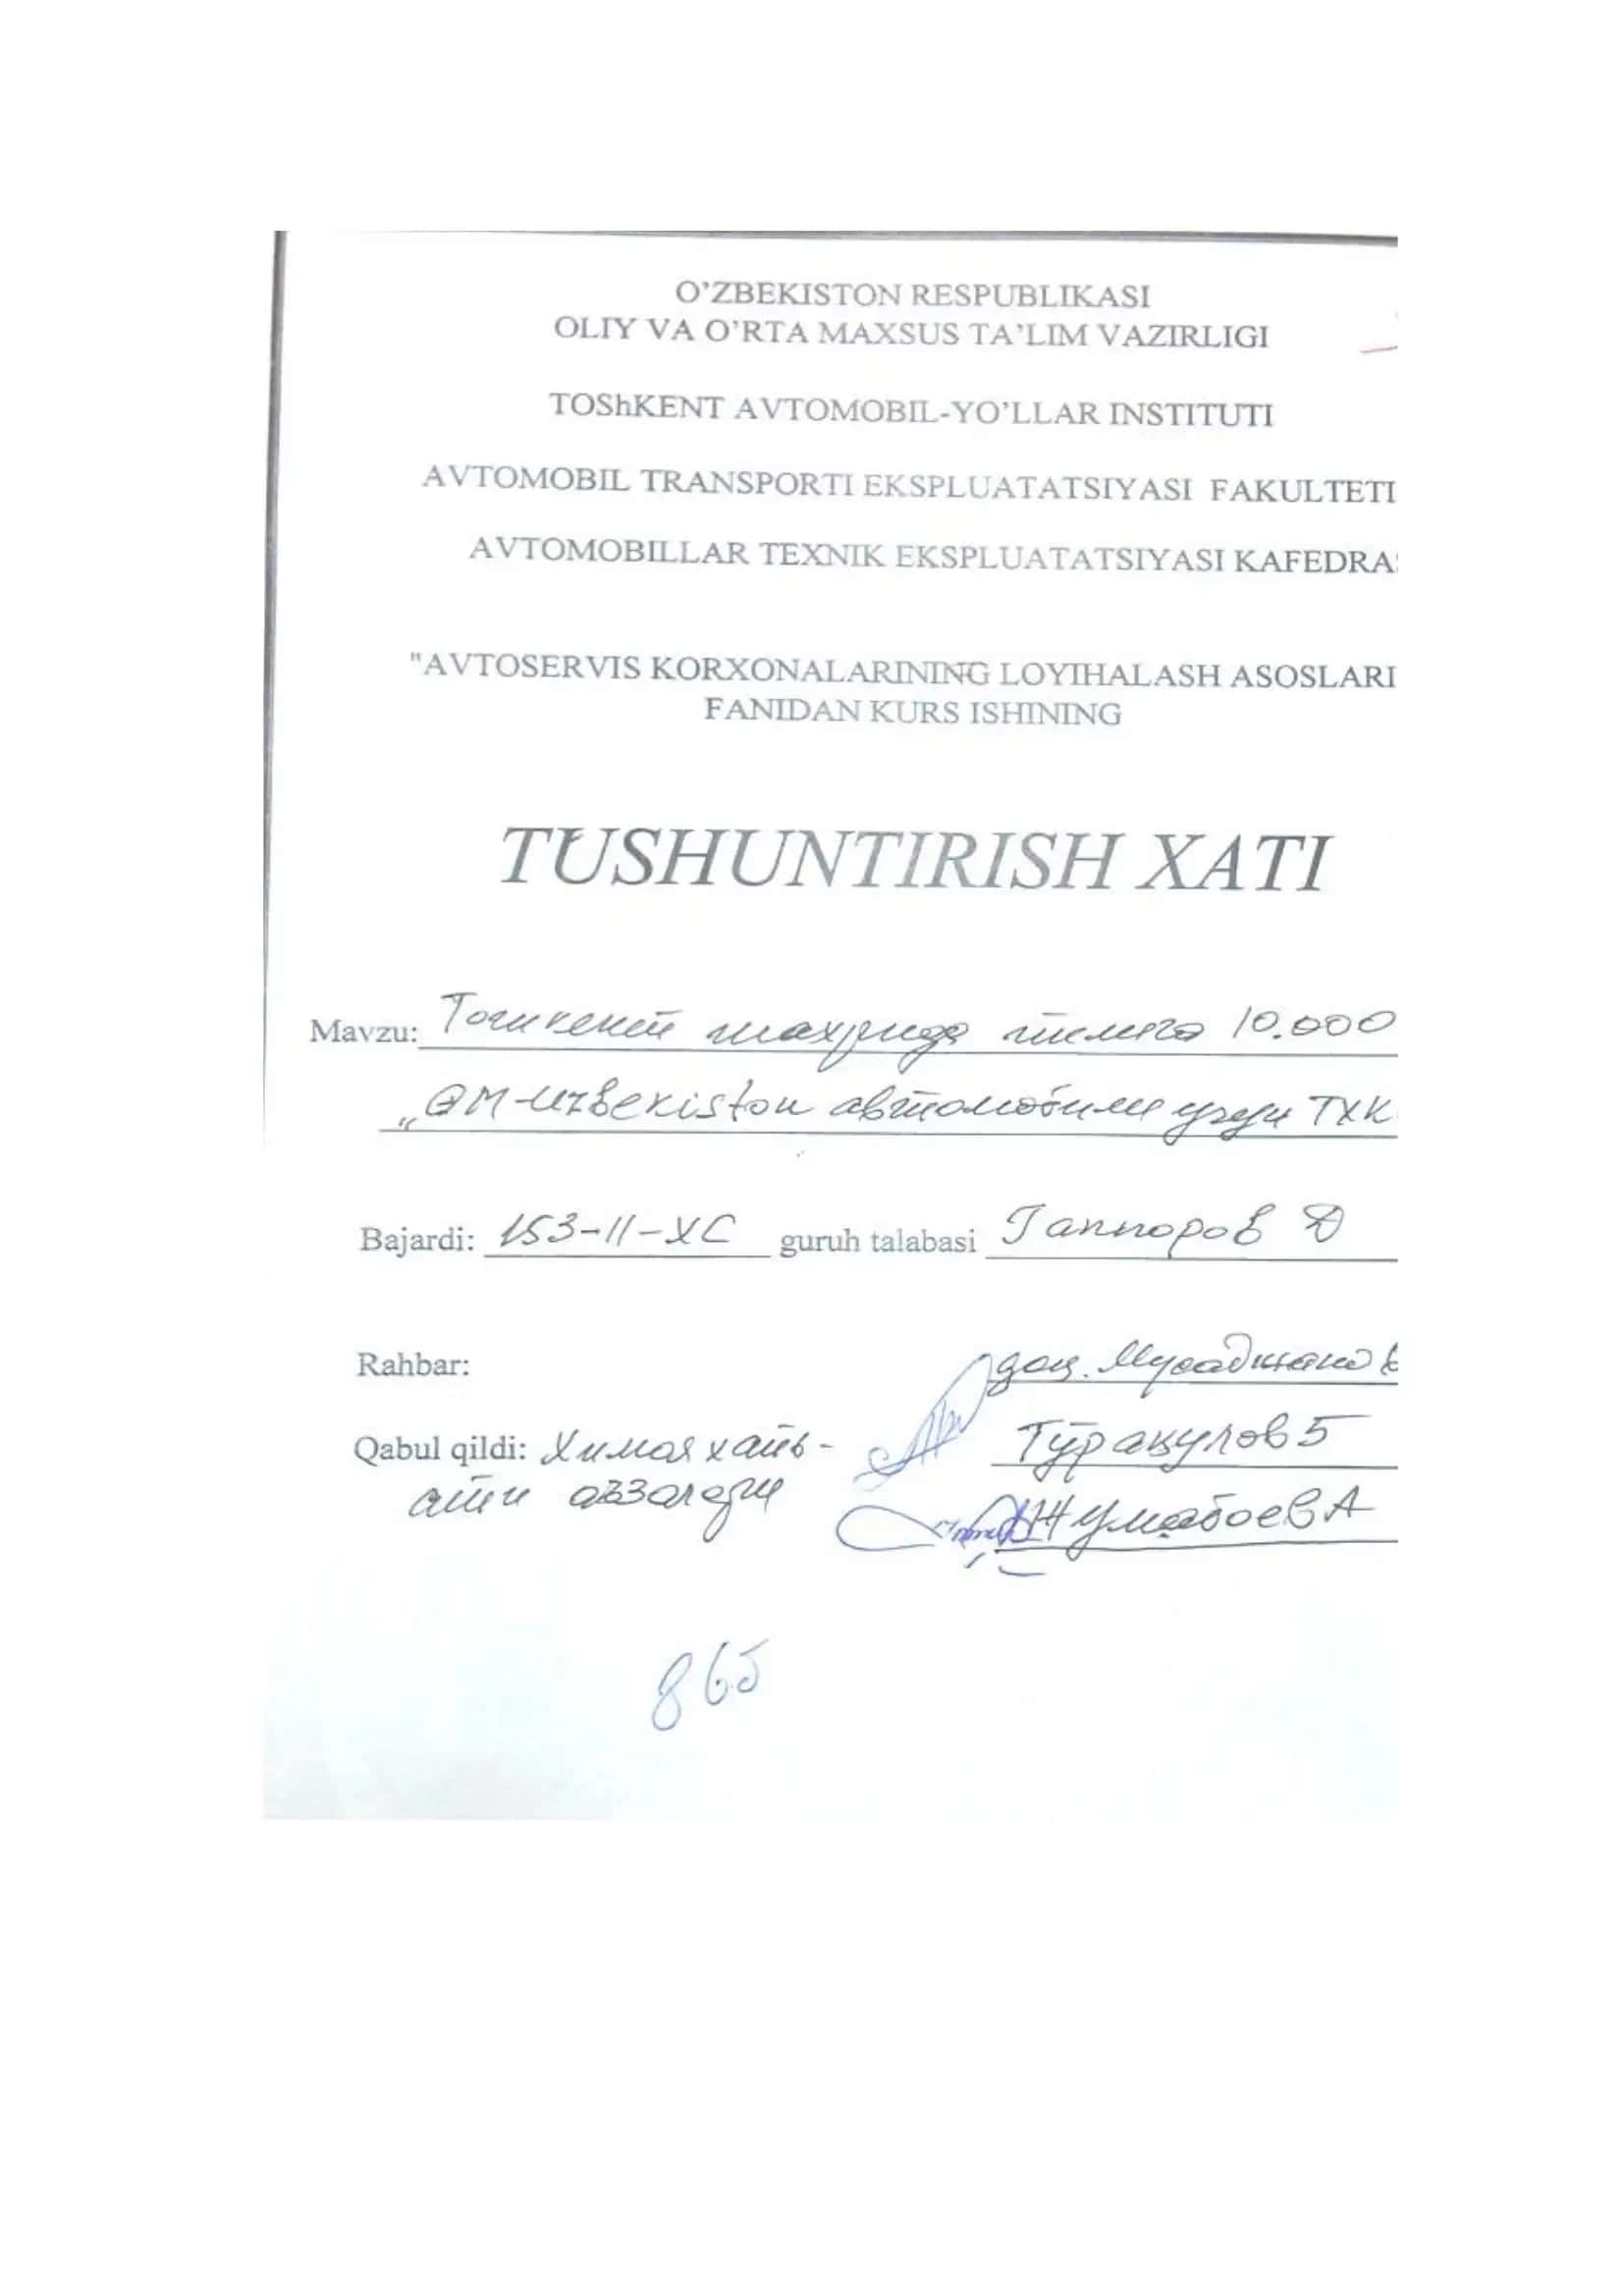 O'ZBEKISTON RESPUBLIKASI
OLIY VA O'RTA MAXSUS TA'LIM VAZIRLIGI
TOShKENT AVTOMOBIL-YO'LLAR INSTITUTI
AVTOMOBIL TRANSPORTI EKSPLUATATSIYASI FAKULTETI
AVTOMOBILLAR TEXNIK EKSPLUATATSIYASI KAFEDRA
"AVTOSERVIS KORXONALARINING LOYIHALASH ASOSLARI
FANIDAN KURS ISHINING
TUSHUNTIRISH XATI
Mavzu: Тошкент шахрида йилига 10.000
„GM-Uzbekiston автомобили учун ТХК
Bajardi: 153-11-ХС guruh talabasi Гаппоров Д
Rahbar: доц. Мусаджанов
Qabul qildi: Химоя хайъ-
ати аъзолари
Тўрақулов Б
Жумабоев А
86б